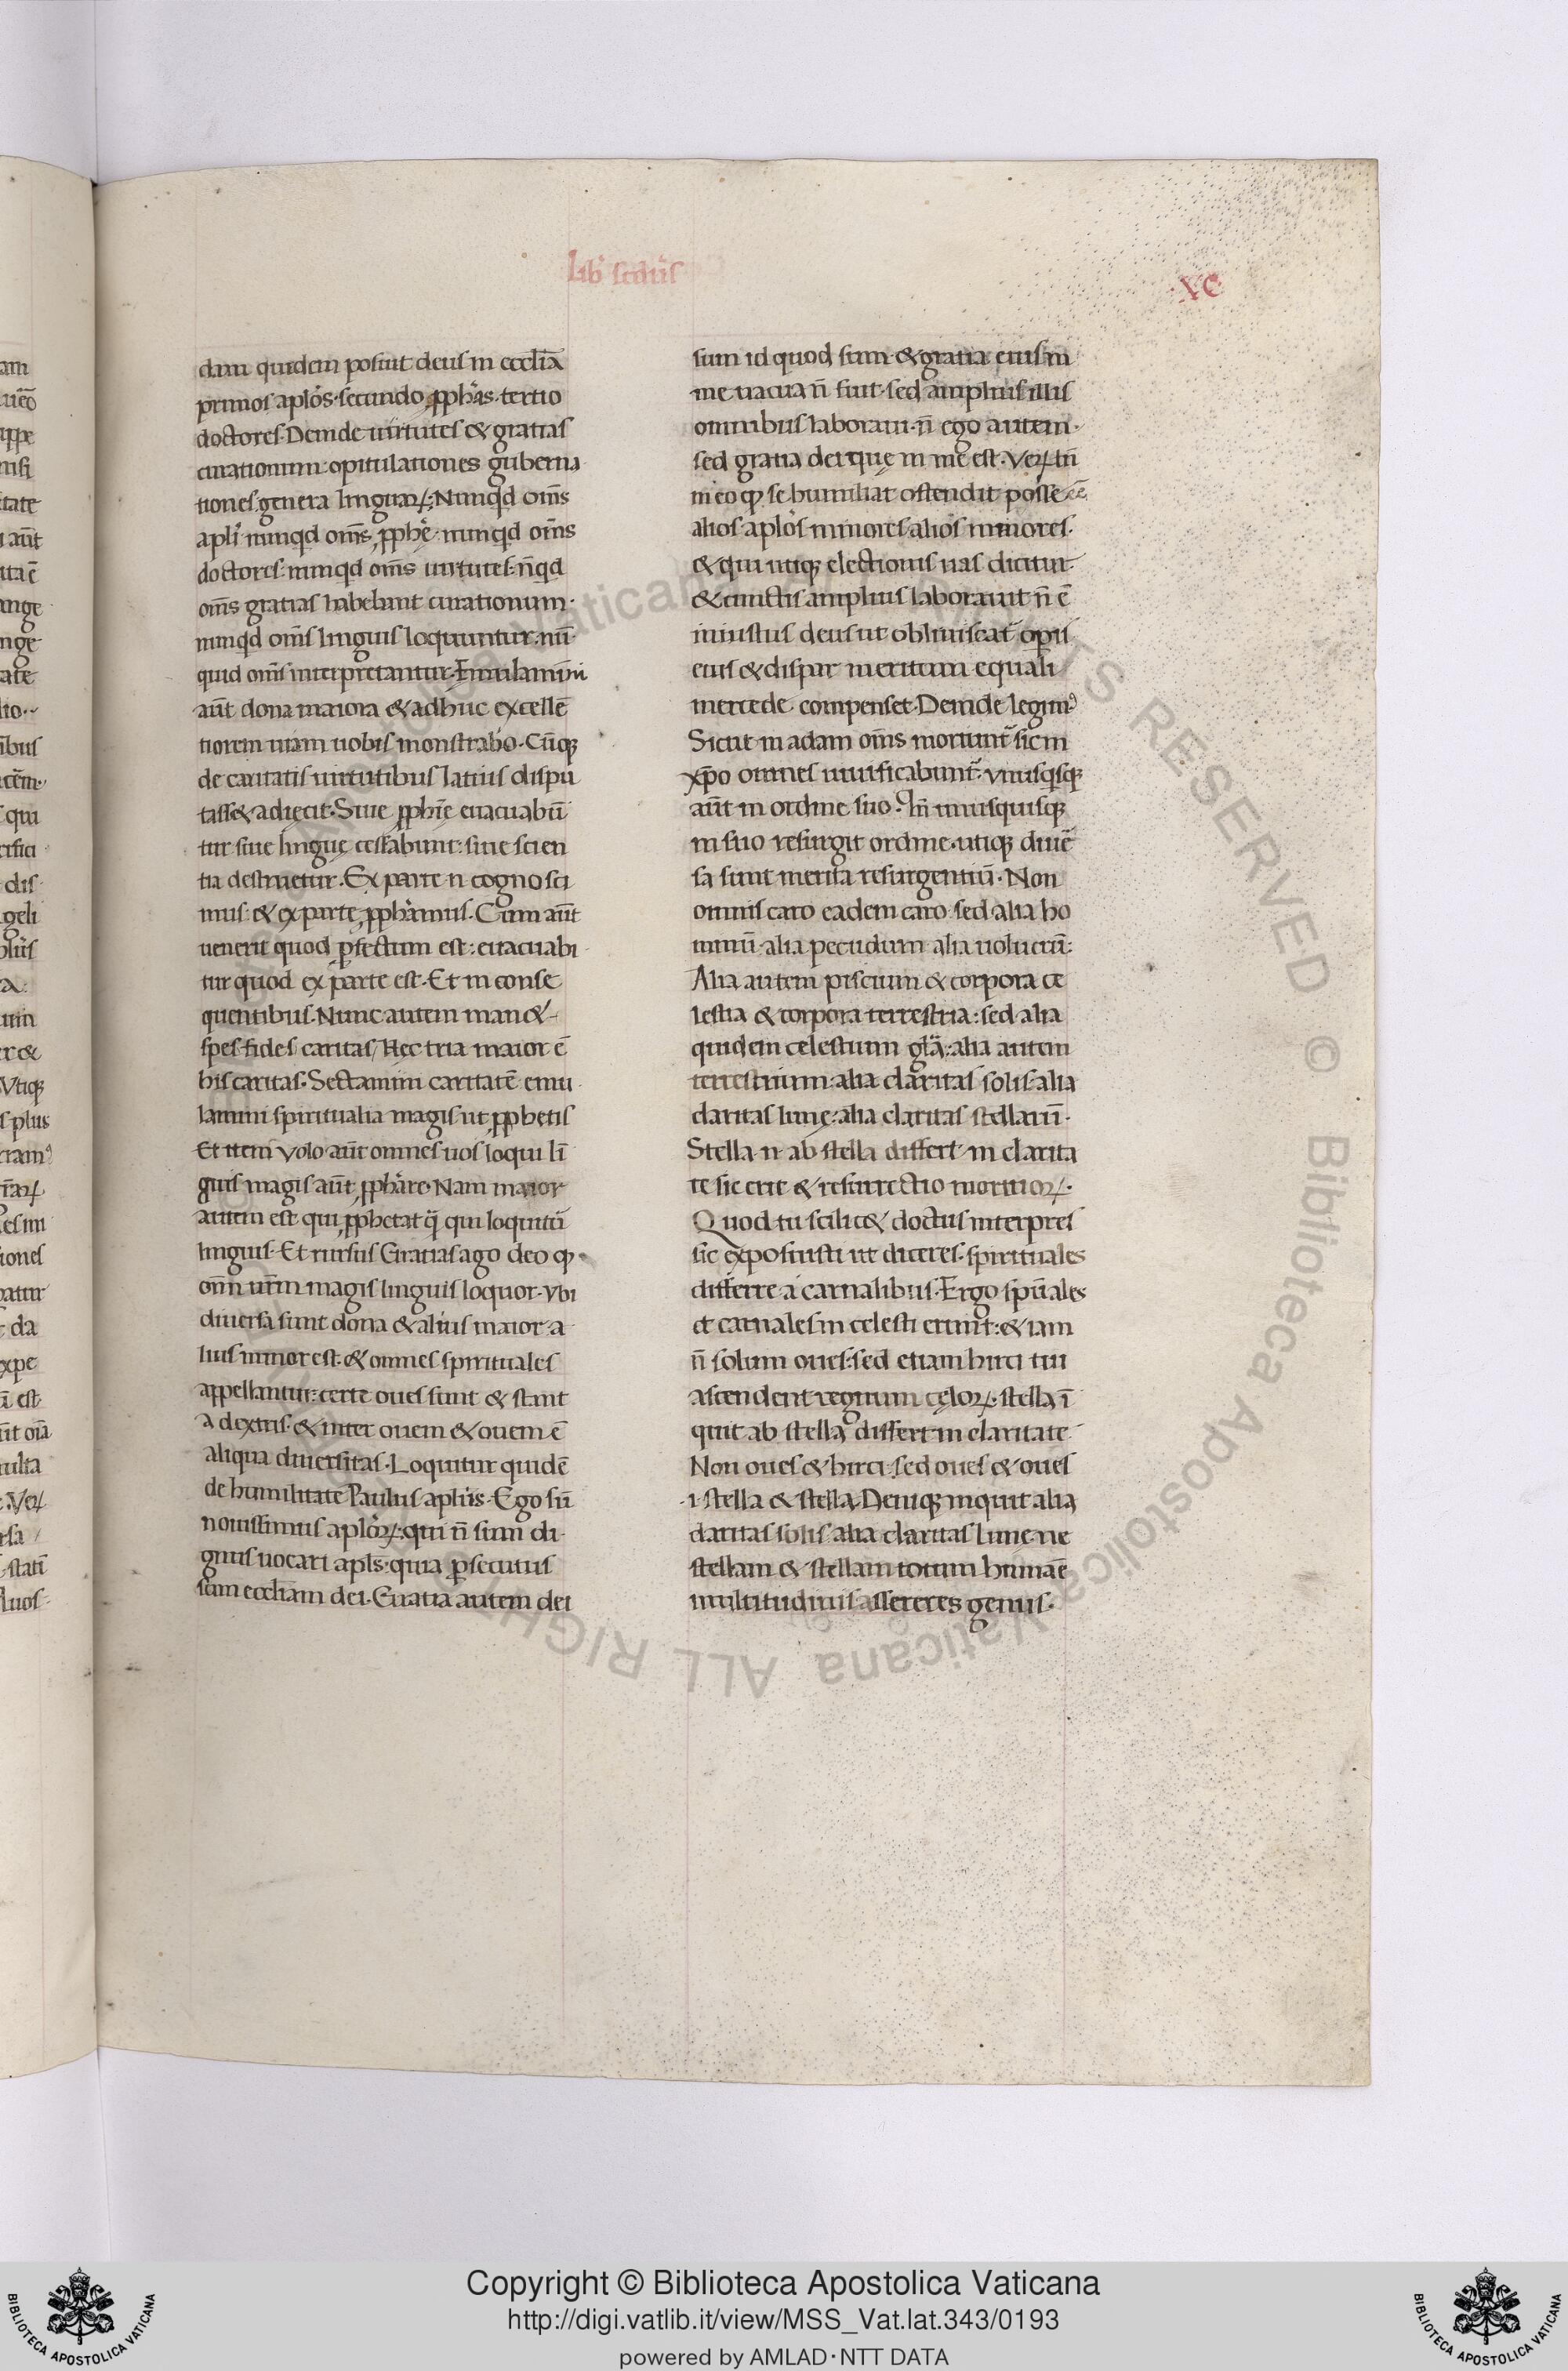 Lib̃ scd̃us
·XC·
dam quidem posuit deus in ecclĩa
primos aplõs· secundo ꝓphãs· tertio
doctores· Deinde uirtutes & gratias
curationum· opitulationes guberna
tiones· genera linguaꝝ· Nunqd om̃s
aplĩ nunqd om̃s ꝓphẽ· nunqd om̃s
doctores· nunqd om̃s uirtutes· ñqd
om̃s gratias habebunt curationum·
nunqd om̃s linguis loquuntur· nũ
quid om̃s interpretantur· Emulamini
aũt dona maiora & adhuc excellẽ
tiorem uiam uobis monstrabo· Cũqꝫ
de caritatis uirtutibus latius dispu
tass& adiecit· Siue ꝓphiẽ euacuabũ
tur siue linguę cessabunt: siue scien
tia destruetur· Ex parte n cognosci
mus: & ex parte ꝓphãmus· Cum aũt
uenerit quod ꝑfectum est: euacuabi
tur quod ex parte est· Et in conse
quentibus· Nunc autem man&
spes· fides caritas/ Hec tria· maior ẽ
his caritas· Sectamini caritatẽ emu
lamini spiritualia magis ut ꝓphetis
Et item Volo aũt omnes uos loqui lĩ
guis magis aũt ꝓphãre· Nam maior
autem est qui ꝓphetat q̃ qui loquitũ
linguis· Et rursus Gratias ago deo qꝫ
om̃ ur̃m magis linguis loquor· Vbi
diuersa sunt dona & alius maior a
lius minor est· & omnes spirituales
appellantur: certe oues sunt & stant
a dextris· & inter ouem & ouem ẽ
aliqua diuersitas· Loquitur quidẽ
de humilitate Paulus aplũs· Ego sũ
nouissimus aplõꝝ· qui ñ sum di
gnus uocari apls· quia ꝑsecutus
sum eccliam dei· Gratia autem dei
sum id quod sum· & gratia eius in
me uacua ñ fuit· sed amplius illis
omnibus laboraui· ñ ego autem·
sed gratia dei quę in me est· Veꝝ tñ
in eo qꝫ se humiliat ostendit posse eẽ
alios aplõs minores alios minores·
& qui utiqꝫ electionis uas dicitur·
& cunctis amplius laborauit ñ ẽ
iniustus deus ut obliuiscat̃ opis
eius & dispar meritum equali
mercede compenset· Deinde legimꝰ
Sicut in adam om̃s moriunt̃ sic in
xp̃o omnes uiuificabunt̃· Vnusqsqꝫ
aũt in ordine suo· Iñ unusquisqꝫ
in suo resurgit ordine· utiqꝫ diuẽ
sa sunt merita resurgentiũ· Non
omnis caro eadem caro· sed alia ho
minũ· alia pecudum alia uolucrũ:
Alia autem piscium & corpora ce
lestia & corpora terrestria: sed alia
quidem celestium glã: alia autem
terrestrium· alia claritas solis· alia
claritas lunę· alia claritas stellarũ·
Stella n ab stella differt in clarita
te sic erit & resurrectio mortuoꝝ·
Quod tu scilic& doctus interpres
sic exposuisti ut diceres· spirituales
differre a carnalibus· Ergo spũales
et carnales in celesti erunt: & iam
ñ solum oues: sed etiam hirci tui
ascendent regnum cęloꝝ· stella ĩ
quit ab stella differt in claritate
Non oues & hirci· sed oues & oues
·i· stella & stella· Deniqꝫ inquit alia
claritas solis alia claritas lunę· ne
stellam & stellam totum humaẽ
multitudinis assereres genus·
Copyright © Biblioteca Apostolica Vaticana
http://digi.vatlib.it/view/MSS_Vat.lat.343/0193
powered by AMLAD·NTT DATA
BIBLIOTECA APOSTOLICA VATICANA
BIBLIOTECA APOSTOLICA VATICANA